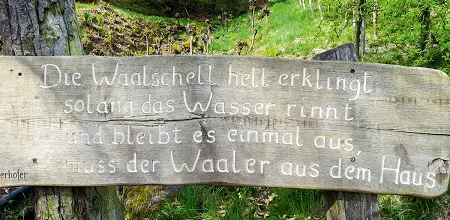 Die Waalschell hell erklingt
solang das Wasser rinnt
und bleibt es einmal aus,
muss der Waaler aus dem Haus.
erhofer